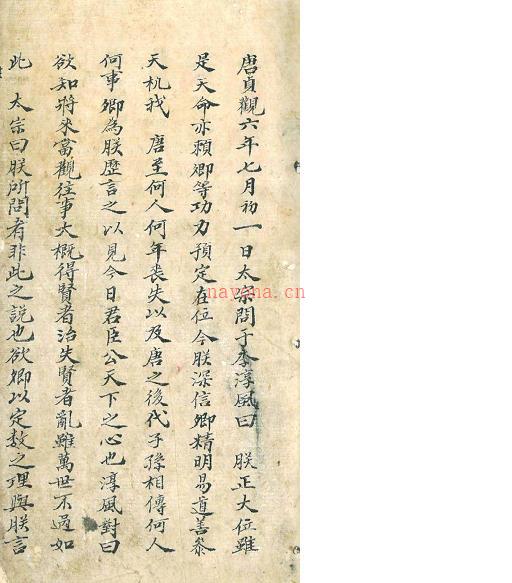 唐貞觀六年七月初一日太宗問于李淳風曰 朕正大位雖
是天命亦賴卿等功力預定在位今朕深信卿精明易道善參
天机我 唐至何人何年丧失以及唐之後代子孫相傳何人
何事卿為朕歷言之以見今日君臣公天下之心也淳風對曰
欲知將來當觀往事大概得賢者治失賢者亂雖萬世不過如
此 太宗曰朕所問者非此之説也欲卿以定数之理與朕言
nayona.cn